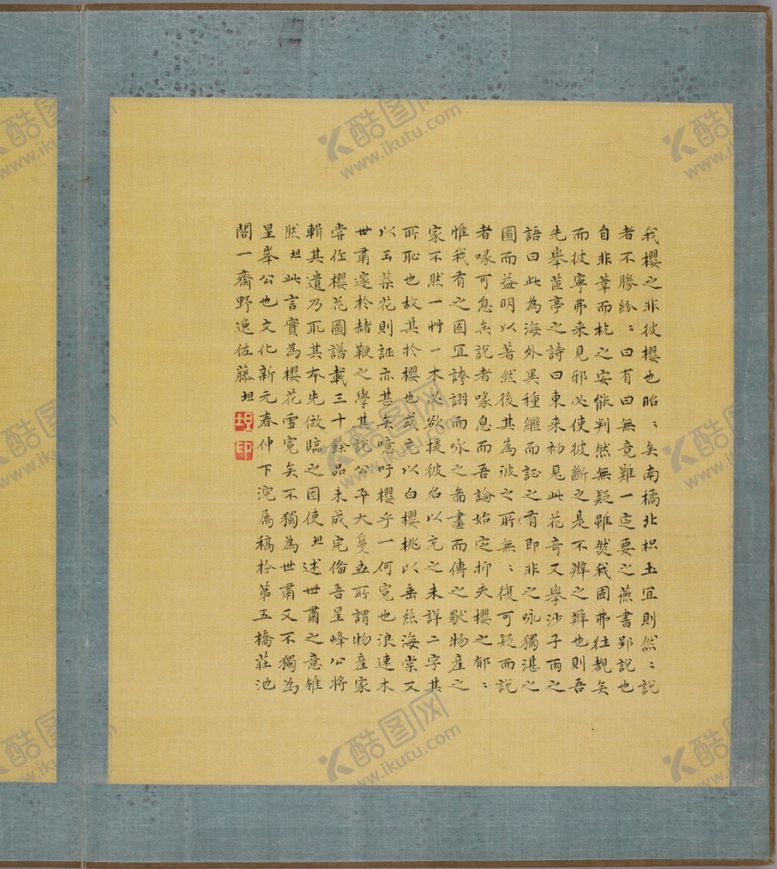 我櫻之非彼櫻也昭〻矣南橘北枳土宜則然〻說
者不勝紛〻曰有曰無竟難一定要之燕書郢說也
自非葦而杭之安能判然無疑雖然我固弗往觀矣
而彼寧弗來見邪必使彼斷之是不辦之辦也則吾
先舉蘐亭之詩曰東來初見此花奇又舉沙子雨之
語曰此為海外異種繼而証之有即非之咏獨湛之
圖而益明以著然後其為彼之所無〻復可疑而說
者喙可息矣說者喙息而吾論始定抑夫櫻之郁〻
惟我有之固宜誇詡而咏之啚畫而傳之獸物産之
家不然一艸一木必欲援彼名以充之未詳二字其
所恥也故其於櫻也或充以白櫻桃以垂絲海棠又
以玉蘂花則誣亦甚矣噫吁櫻乎一何寃也浪速木
世肅邃於赭鞭之學其說公平大戞並所謂物産家
嘗作櫻花圖譜載三十餘品未成完偹吾星峰公將
輯其遺乃取其本先倣臨之因使坦述世肅之意雖
然坦此言實為櫻花雪寃矣不獨為世肅又不獨為
星峯公也文化新元春仲下浣属稿於第五橋莊池
閣一齋野逸佐藤坦
坦印
酷图网
www.ikutu.com
酷图网
www.ikutu.com
酷图网
www.ikutu.com
酷图网
www.ikutu.com